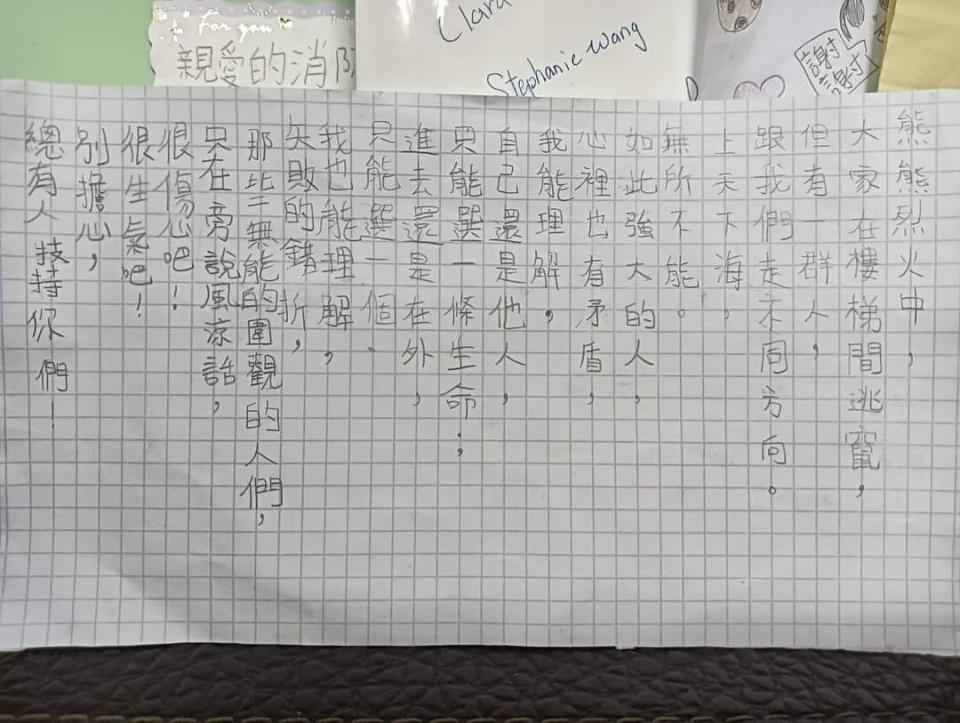 For you
親愛的消防
Clara
Stephanie Wang
謝謝
熊熊烈火中，
大家在樓梯間逃竄，
但有一群人，
跟我們走不同方向。
上天下海，
無所不能。
如此強大的人，
心裡也有矛盾，
我能理解，
自己還是他人，
只能選一條生命；
進去還是在外，
只能選一個．
我也能理解，
失敗的錯折，
那些無能的圍觀的人們，
只在旁說風涼話，
很傷心吧！
很生氣吧！
別擔心，
總有人技持你們！